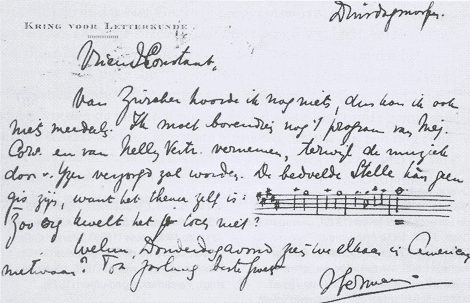 Dinsdagmorgen
KRING VOOR LETTERKUNDE.
Vriend Constant,
Van Zürcher hoorde ik nog niets, dus kan ik ook
niets meedeelen. Ik moet bovendien nog 't program van Mej.
en van Nelly vernemen, terwijl de muziek
door v. verzorgd zal worden. De bedoelde Stelle kan geen
gis zijn, want het thema zelf is:
Zoo erg kwelt het je toch niet?
Welnu, Donderdagavond zien we elkaar in Americain
nietwaar? Tot zoolang best gegroet
Herman